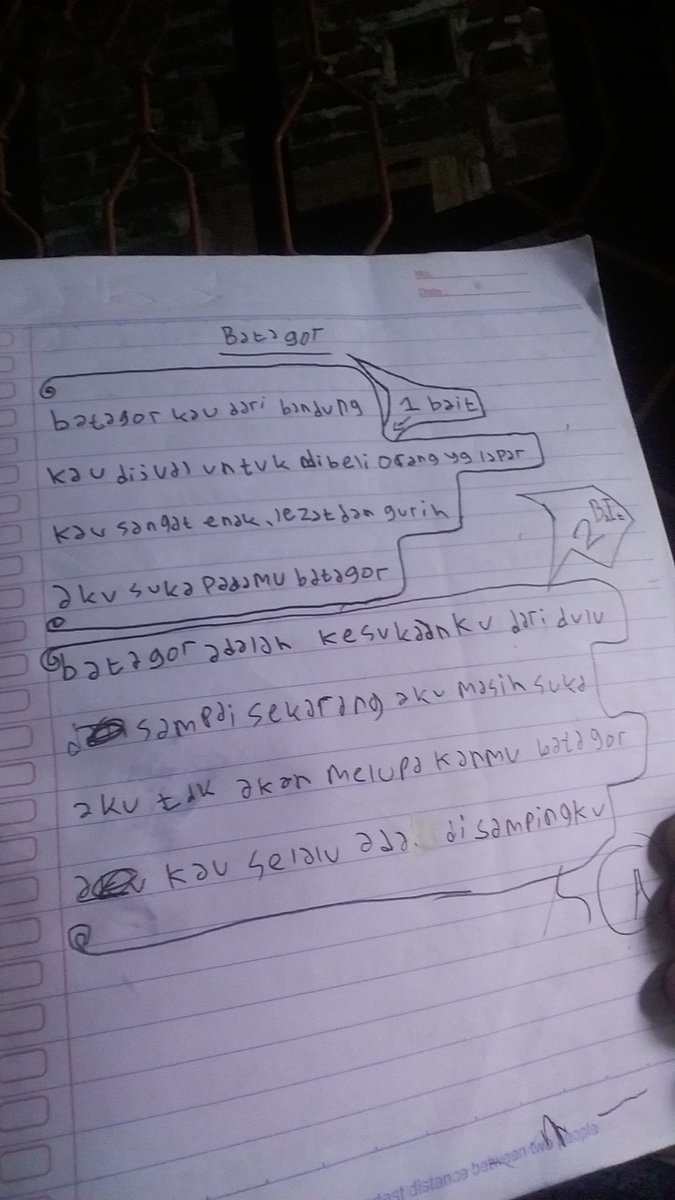 No.
Date.
Batagor
batagor kau dari bandung
1 bait
kau dijual untuk dibeli orang yg lapar
kau sangat enak, lezat dan gurih
2 BIt
aku suka padamu batagor
batagor adalah kesukaanku dari dulu
sampai sekarang aku masih suka
aku tak akan melupakanmu batagor
kau selalu ada disampingku
A
distance between two people